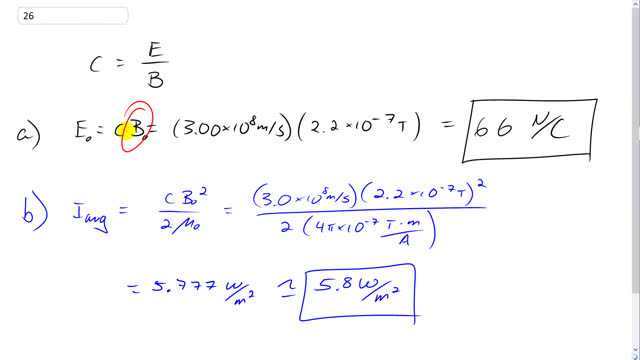 26
C = E/B
a) E₀ = C B₀ = (3.00×10⁸ m/s)(2.2×10⁻⁷ T) = 66 N/C
b) I_avg = C B₀²/2μ₀ = (3.0×10⁸ m/s)(2.2×10⁻⁷ T)²/2(4π×10⁻⁷ T·m/A)
= 5.777 W/m² ≃ 5.8 W/m²